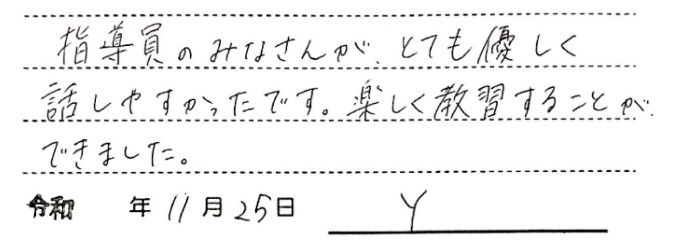 指導員のみなさんが、とても優しく
話しやすかったです。楽しく教習することが
できました。
令和 年 11月25日 Y